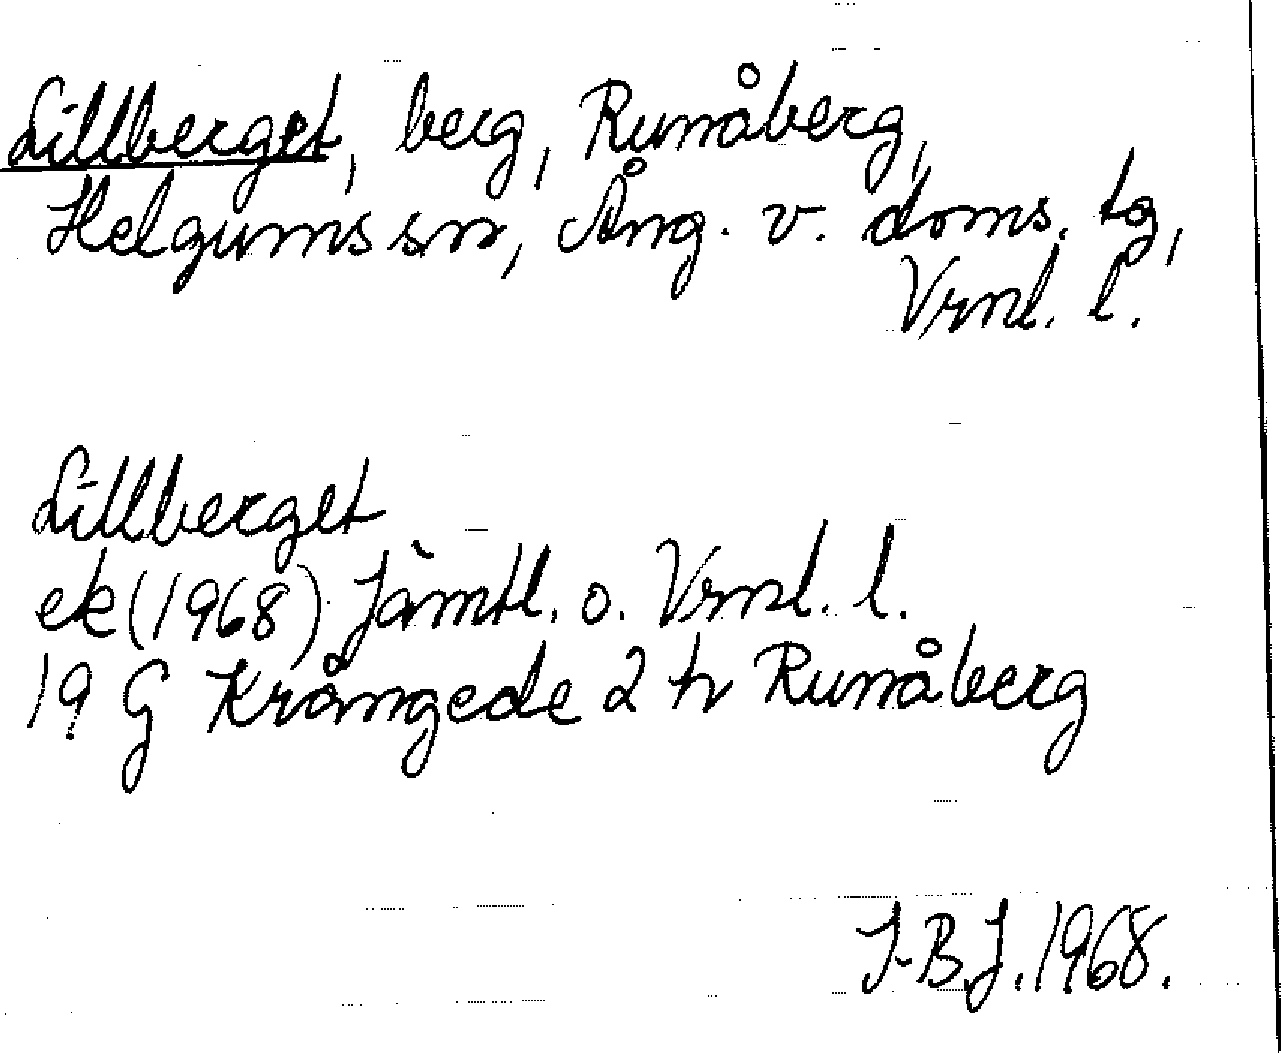 Lillberget, berg, Runåberg,
Helgums sn, Ång. v. doms. tg,
Vrnl. l.
Lillberget
ek (1968) Jämtl. o. Vrnl. l.
19 G Krångede 2 tr Runåberg
J-B.J. 1968.